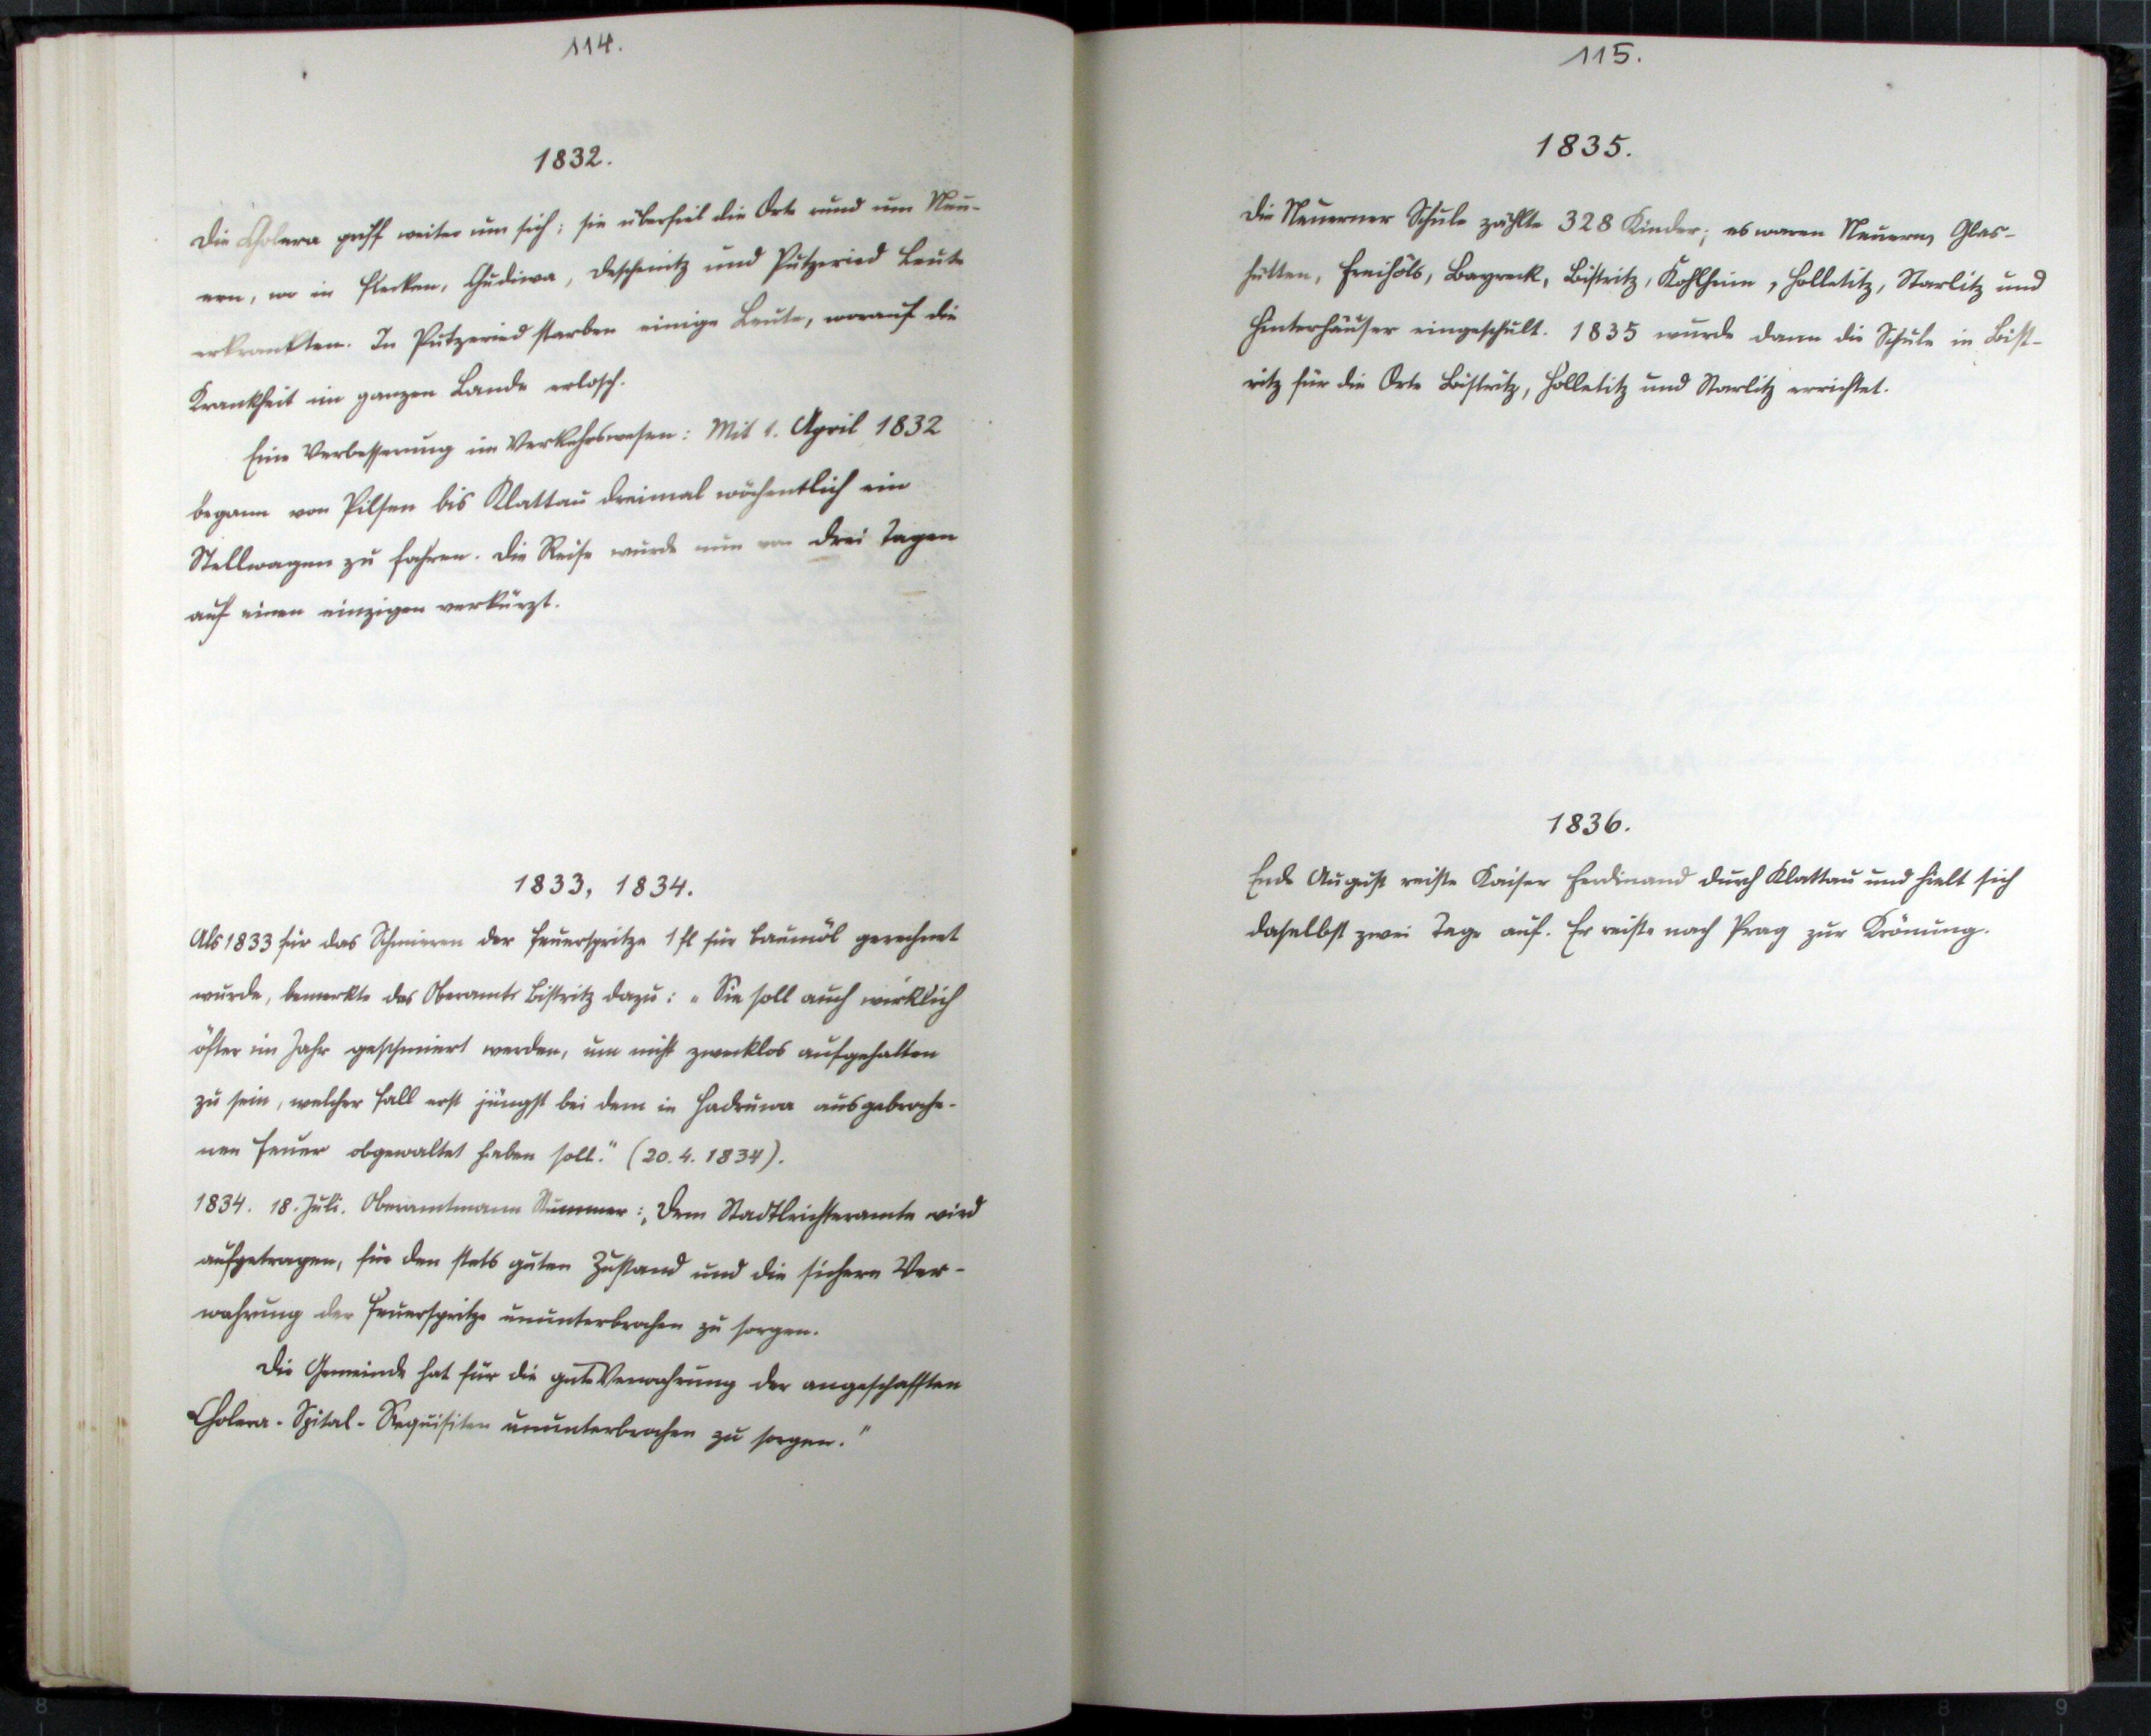 114.
1832.
Die Cholera griff weiter um sich; sie überfiel die Orte rund um Neu-
ern, wo in Flecken, Chudiwa, Deschenitz und Putzeried Leute
erkrankten. In Putzeried starben einige Leute, worauf die
Krankheit im ganzen Lande erlosch.
Eine Verbesserung im Verkehrswesen: Mit 1. April 1832
begann von Pilsen bis Klattau dreimal wöchentlich ein
Stellwagen zu fahren. Die Reise wurde nun von drei Tagen
auf einen einzigen verkürzt.
1833, 1834.
Als 1833 für das Schmieren der Feuerspritze 1 fl für Baumöl gerechnet
wurde, bemerkte das Oberamt Bistritz dazu: „Sie soll auch wirklich
öfter im Jahr geschmiert werden, um nicht zwecklos aufgehalten
zu sein, welcher Fall erst jüngst bei dem in Hadruwa ausgebroche-
nen Feuer obgewaltet haben soll." (20. 4. 1834).
1834. 18. Juli. Oberamtmann: „Dem Stadtrichteramte wird
aufgetragen, für den stets guten Zustand und die sichere Ver-
wahrung der Feuerspritze ununterbrochen zu sorgen.
Die Gemeinde hat für die gute Verwahrung der angeschafften
Cholera-Spital-Requisiten ununterbrochen zu sorgen."
115.
1835.
Die Neuerner Schule zählte 328 Kinder; es waren Neuern, Glas-
hütten, Freihöls, Bayreck, Bistritz, Kohlheim, Holletitz, Starlitz und
Hinterhäuser eingeschult. 1835 wurde dann die Schule in Bist-
ritz für die Orte Bistritz, Holletitz und Starlitz errichtet.
1836.
Ende August reiste Kaiser Ferdinand durch Klattau und hielt sich
daselbst zwei Tage auf. Er reiste nach Prag zur Krönung.